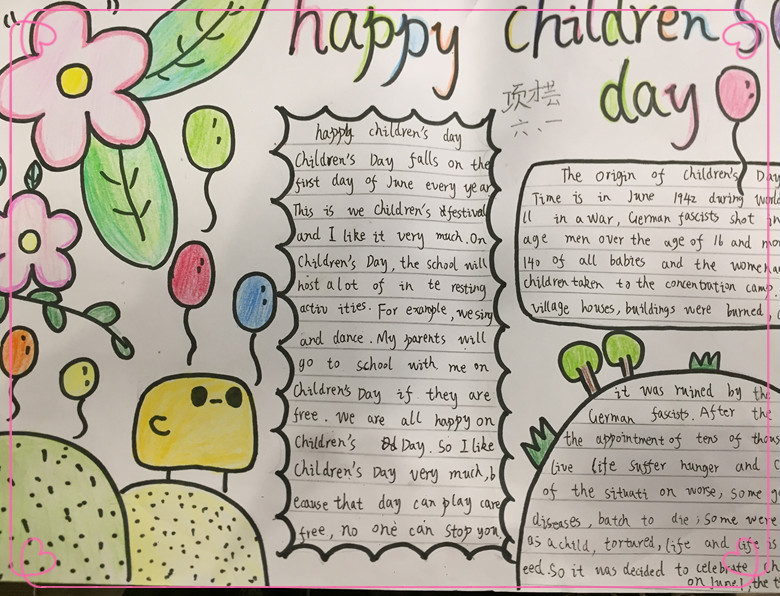 happy children's
day
项芸
六、一
happy children's day
Children's Day falls on the
first day of June every year
This is we Children's festival
and I like it very much. On
Children's Day, the school will
host a lot of in te resting
activ ities. For example, we sing
and dance. My parents will
go to school with me on
Children's Day if they are
free. We are all happy on
Children's Day. So I like
Children's Day very much, b
ecause that day can play care
free, no one can stop you.
The origin of Children's Day
Time is in June 1942 during world
ll in a war, German fascists shot
age men over the age of 16 and
140 of all babies and the women
children taken to the concentration camp.
village houses, buildings were burned,
it was ruined by the
German fascists. After the
the appointment of tens of thous
live life suffer hunger and
of the situati on worse, some
diseases, batch to die; some were
as a child, tortured, life and life is
eed. So it was decided to celebrate
on June 1, the